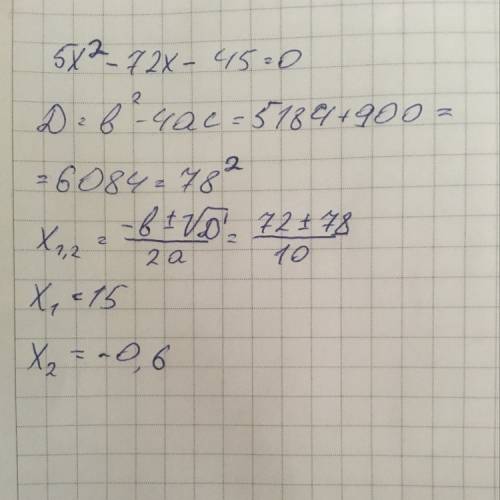 5x² - 72x - 45 = 0
D = b² - 4ac = 5184 + 900 =
= 6084 = 78²
x₁,₂ = (-b ± √D)/2a = (72 ± 78)/10
x₁ = 15
x₂ = -0,6